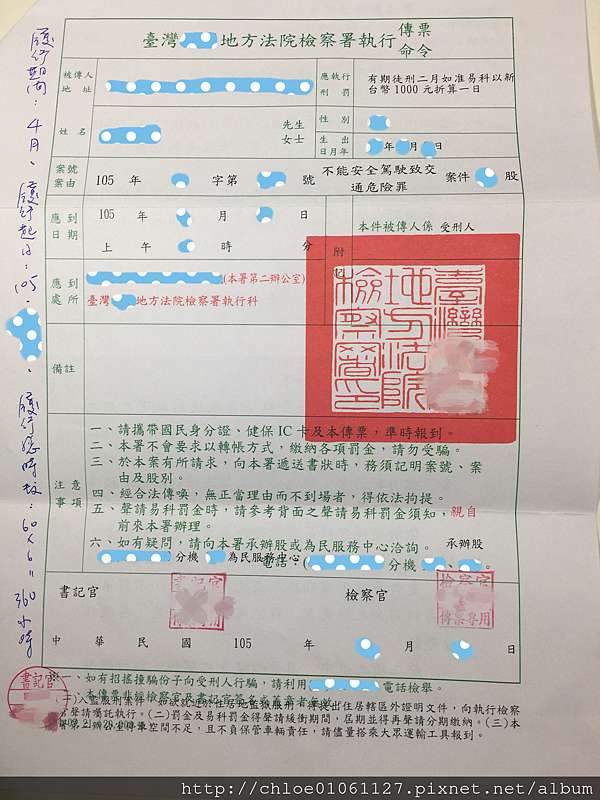 臺灣 地方法院檢察署執行 傳票 命令
被傳人 地址
應執行 刑罰
有期徒刑二月如准易科以新台幣1000元折算一日
姓名
先生 女士
性別
生出 日月年
年 月 日
案號 案由
105 年 字第 號
不能安全駕駛致交通危險罪
案件 股
應到 日期
105 年 月 日
上午 時 分
附記
本件被傳人係 受刑人
應到 處所
(本署第二辦公室)
臺灣 地方法院檢察署執行科
備註
注意 事項
一、請攜帶國民身分證、健保IC卡及本傳票,準時報到。
二、本署不會要求以轉帳方式,繳納各項罰金,請勿受騙。
三、於本案有所請求,向本署遞送書狀時,務須記明案號、案由及股別。
四、經合法傳喚,無正當理由而不到場者,得依法拘提。
五、聲請易科罰金時,請參考背面之聲請易科罰金須知,親自前來本署辦理。
六、如有疑問,請向本署承辦股或為民服務中心洽詢。 承辦股
電話:( 分機 為民服務中心 分機:
書記官
檢察官
中華民國 105 年 月 日
一、如有招搖撞騙份子向受刑人行騙,請利用 電話檢舉。
本傳票非經檢察官及書記官簽名或蓋章者無效
(一)入監服刑案件,如欲就近於住居地監獄服刑,得提出住居轄區外證明文件,向執行檢察
聲請囑託執行。(二)罰金及易科罰金得聲請緩衝期間,屆期並得再聲請分期繳納。(三)本
署第二辦公室停車空間不足,且不負保管車輛責任,請儘量搭乘大眾運輸工具報到。
履行期間:4月、履行起日:105. 、履行總時數:60×6=360小時
書記官
http://chloe01061127.pixnet.net/album